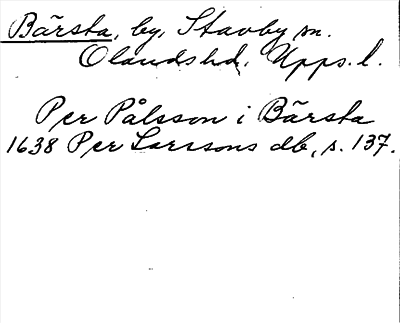 Bärsta, by, Stavby sn.
Olandshd, Upps. l.
Per Pålsson i Bärsta
1638 Per Larssons db, s. 137.